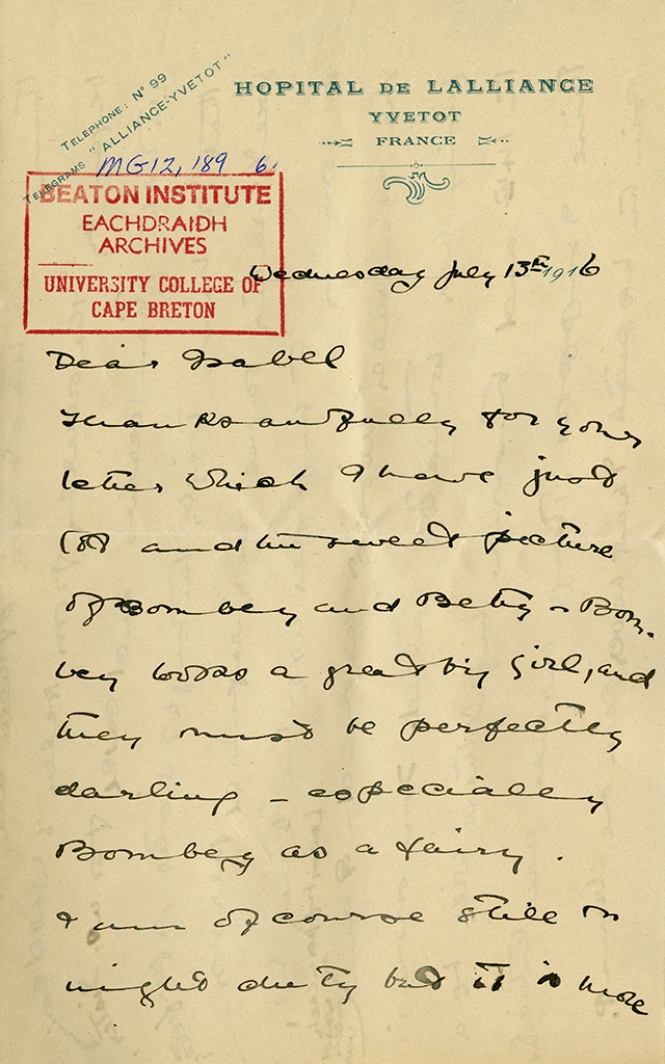 TELEPHONE: Nº 99
TELEGRAMS "ALLIANCE-YVETOT"
HOPITAL DE LALLIANCE
YVETOT
FRANCE
MG12, 189 6.
BEATON INSTITUTE
EACHDRAIDH
ARCHIVES
UNIVERSITY COLLEGE OF
CAPE BRETON
Wednesday July 13th 1916
Dear Isabel
Thanks awfully for your
letter which I have just
got and the sweet picture
of Bombey and Betty - Bom-
bey looks a great big girl, and
they must be perfectly
darling - especially
Bombey as a fairy.
I am of course still on
night duty but it is more